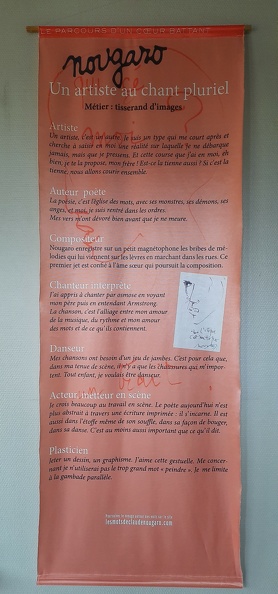 LE PARCOURS D'UN CŒUR BATTANT
nougaro
Un artiste au chant pluriel
Métier : tisserand d'images
Artiste
Un artiste, c'est un autre. Je suis un type qui me court après et
cherche à saisir en moi une réalité sur laquelle je ne débarque
jamais, mais que je pressens. Et cette course que j'ai en moi, eh
bien, je te la propose, mon frère ! Est-ce la tienne aussi ? Si c'est la
tienne, nous allons courir ensemble.
Auteur poète
La poésie, c'est l'église des mots, avec ses monstres, ses démons, ses
anges, et moi, je suis rentré dans les ordres.
Mes vers m'ont dévoré bien avant que je ne meure.
Compositeur
Nougaro enregistre sur un petit magnétophone les bribes de mé-
lodies qui lui viennent sur les lèvres en marchant dans les rues. Ce
premier jet est confié à l'âme sœur qui poursuit la composition.
Chanteur interprète
J'ai appris à chanter par osmose en voyant
mon père puis en entendant Armstrong.
La chanson, c'est l'alliage entre mon amour
de la musique, du rythme et mon amour
des mots et de ce qu'ils contiennent.
Danseur
Mes chansons ont besoin d'un jeu de jambes. C'est pour cela que,
dans ma tenue de scène, il n'y a que les chaussures qui m'impor-
tent. Tout enfant, je voulais être danseur.
Acteur, metteur en scène
Je crois beaucoup au travail en scène. Le poète aujourd'hui n'est
plus abstrait à travers une écriture imprimée : il s'incarne. Il est
aussi dans l'étoffe même de son souffle, dans sa façon de bouger,
dans sa danse. C'est au moins aussi important que ce qu'il dit.
Plasticien
Jeter un dessin, un graphisme. J'aime cette gestuelle. Me concer-
nant je n'utiliserai pas le trop grand mot « peindre ». Je me limite
à la gambade parallèle.